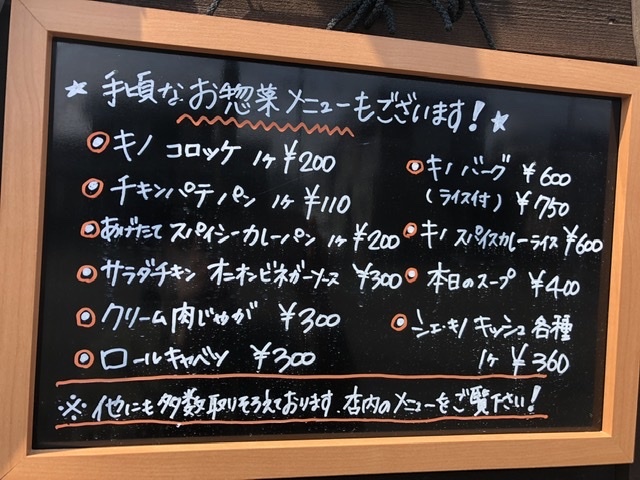 ★ 手頃なお惣菜メニューもございます！★
キノ コロッケ 1ヶ ¥200
チキンパテパン 1ヶ ¥110
あげたて スパイシーカレーパン 1ヶ ¥200
サラダチキン オニオンビネガーソース ¥300
クリーム肉じゃが ¥300
ロールキャベツ ¥300
キノ バーグ ¥600
(ライス付) ¥750
キノ スパイスカレーライス ¥600
本日のスープ ¥400
シェ・キノ キッシュ 各種
1ヶ ¥360
※ 他にも多数取りそろえております、店内のメニューをご覧下さい！